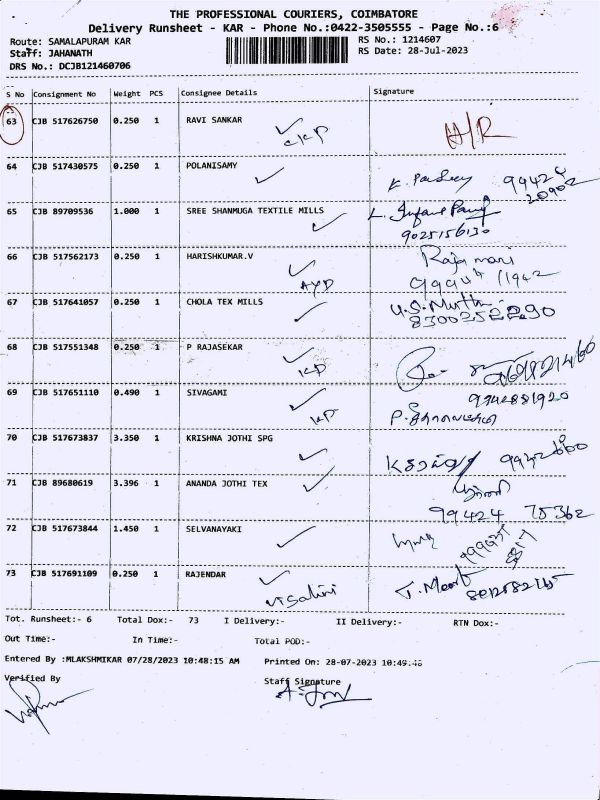 THE PROFESSIONAL COURIERS, COIMBATORE
Delivery Runsheet - KAR - Phone No.:0422-3505555 - Page No.:6
Route: SAMALAPURAM KAR
RS No.: 1214607
Staff: JAHANATH
RS Date: 28-Jul-2023
DRS No.: DCJB121460706
S No Consignment No Weight PCS Consignee Details Signature
63 CJB 517626750 0.250 1 RAVI SANKAR
CKP H/R
64 CJB 517430575 0.250 1 POLANISAMY
65 CJB 89709536 1.000 1 SREE SHANMUGA TEXTILE MILLS
9025156130
66 CJB 517562173 0.250 1 HARISHKUMAR.V Raja mani
AYD
67 CJB 517641057 0.250 1 CHOLA TEX MILLS
8300252290
68 CJB 517551348 0.250 1 P RAJASEKAR
KP
69 CJB 517651110 0.490 1 SIVAGAMI
KP
70 CJB 517673837 3.350 1 KRISHNA JOTHI SPG
71 CJB 89680619 3.396 1 ANANDA JOTHI TEX
99424 75362
72 CJB 517673844 1.450 1 SELVANAYAKI
73 CJB 517691109 0.250 1 RAJENDAR
Tot. Runsheet:- 6 Total Dox:- 73 I Delivery:- II Delivery:- RTN Dox:-
Out Time:- In Time:- Total POD:-
Entered By :MLAKSHMIKAR 07/28/2023 10:48:15 AM Printed On: 28-07-2023 10:49:46
Verified By Staff Signature